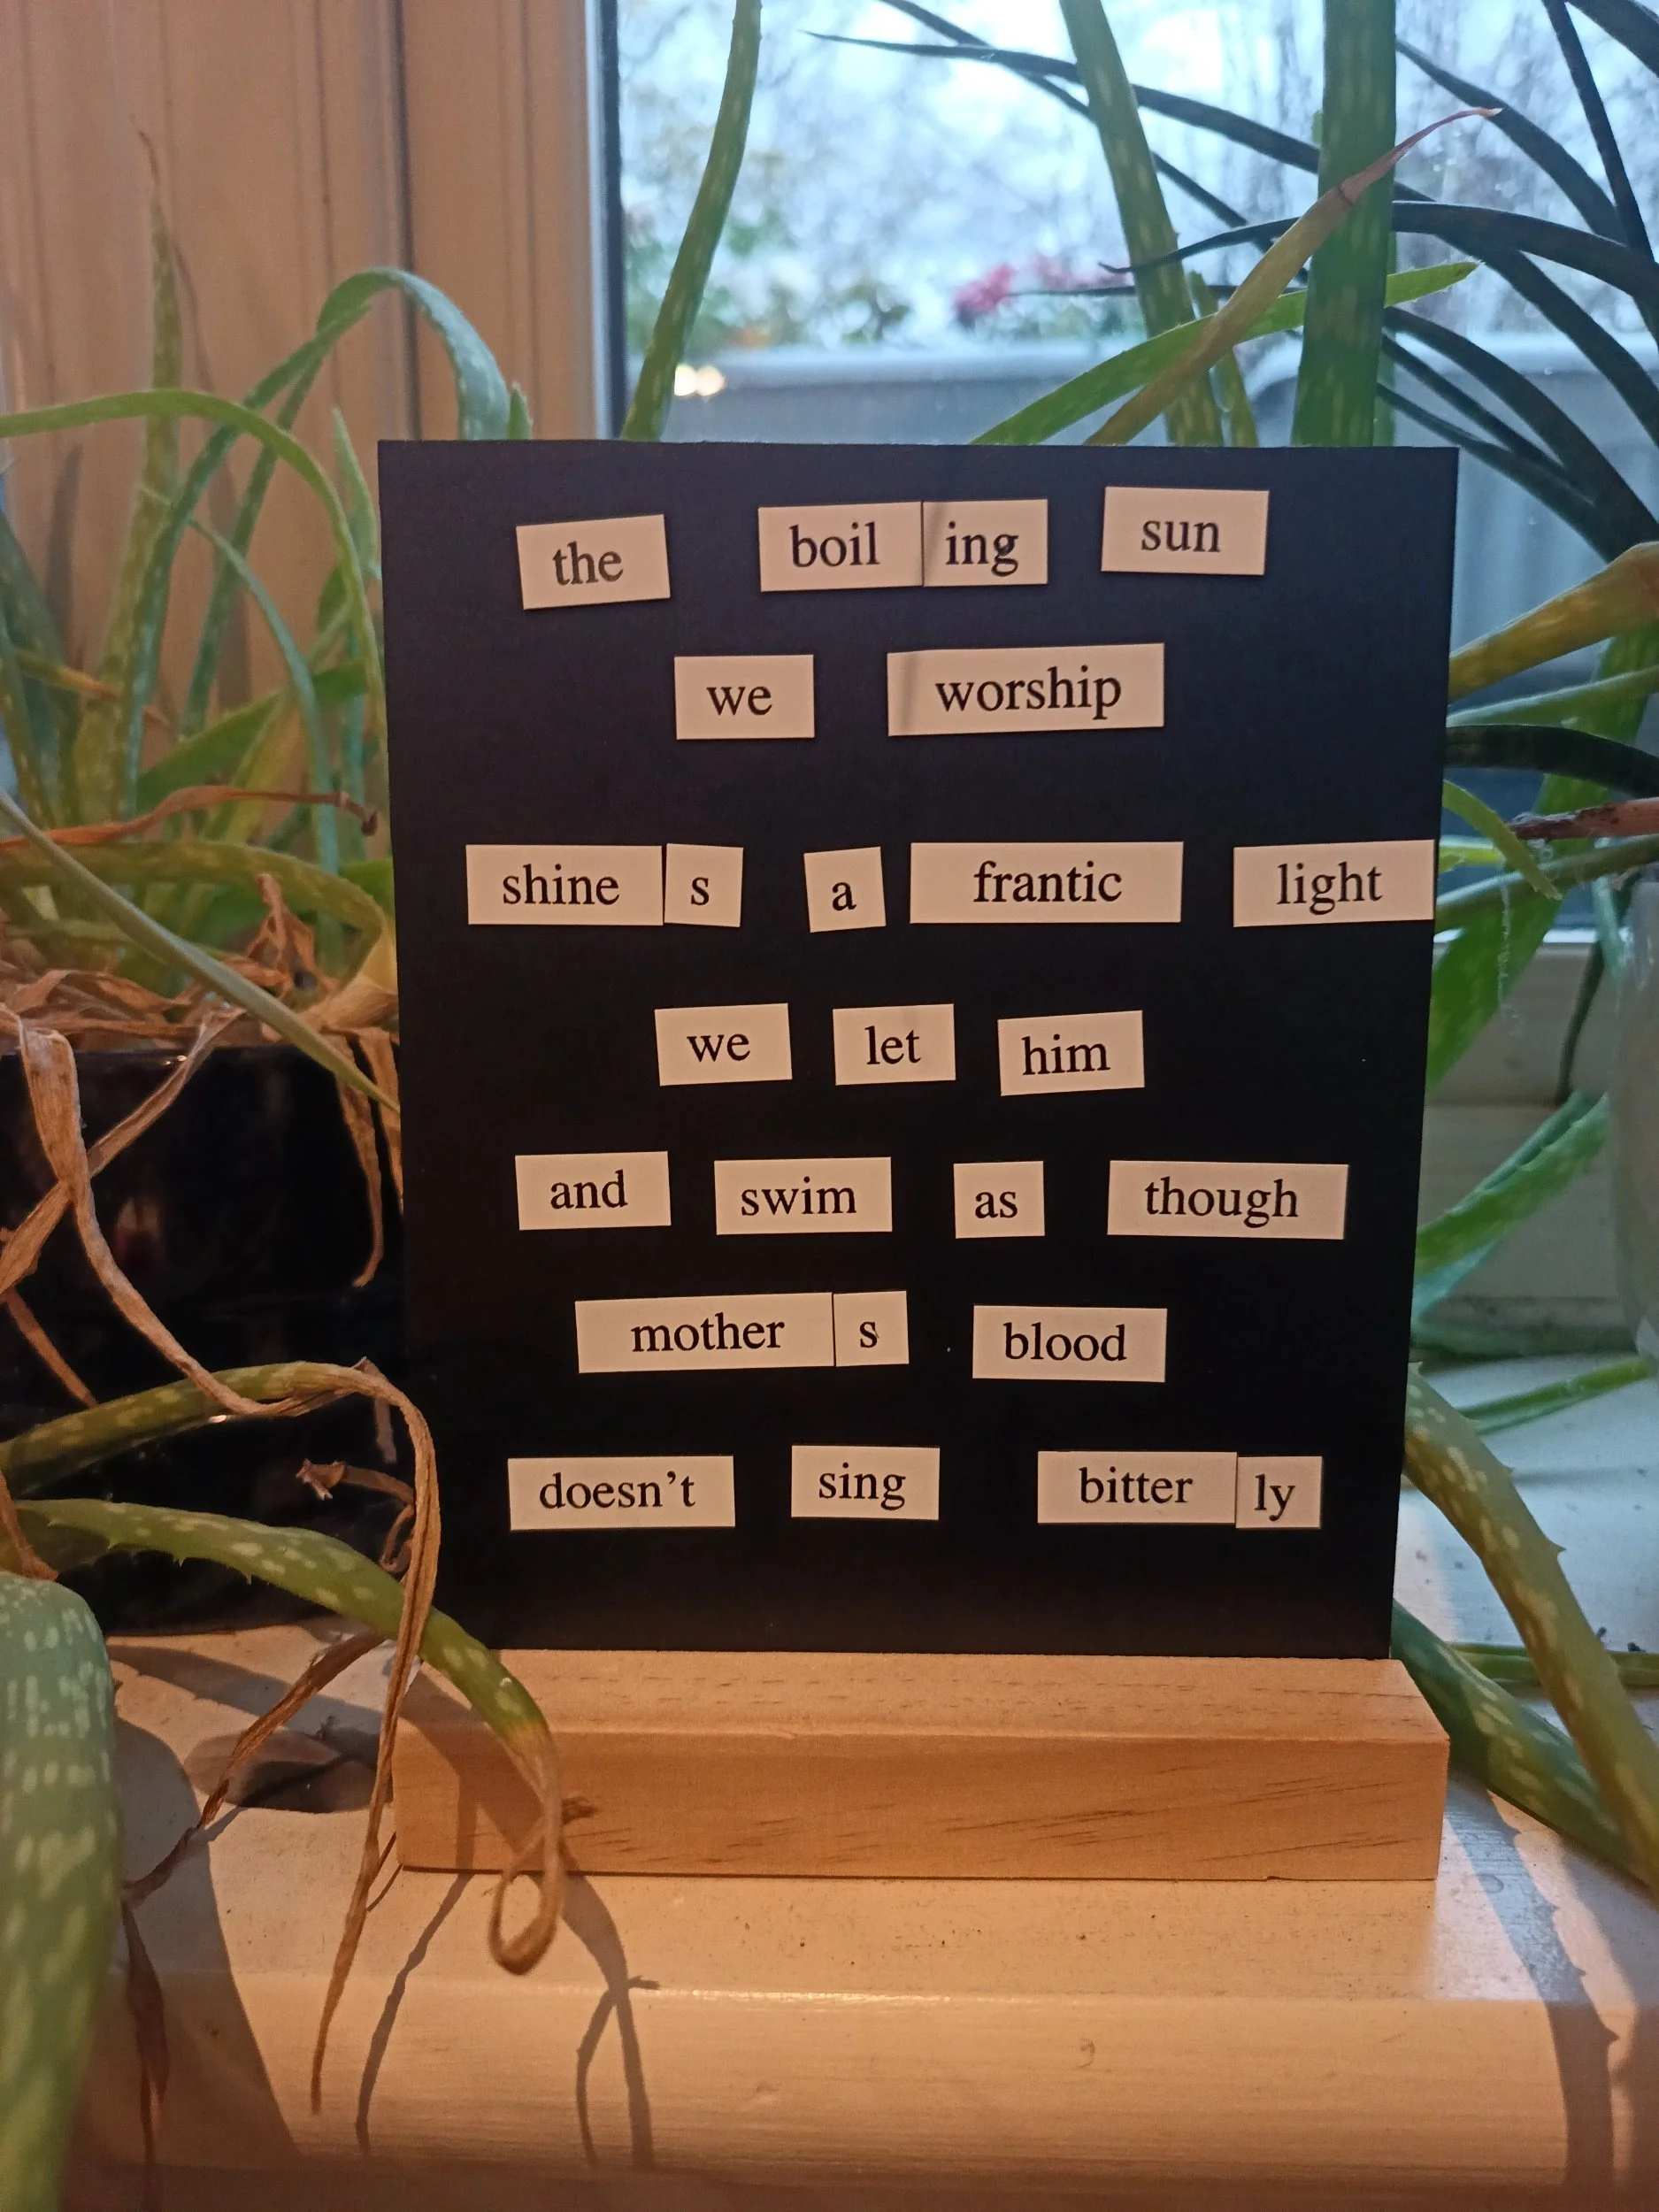 the boiling sun
we worship
shines a frantic light
we let him
and swim as though
mothers blood
doesn't sing bitterly